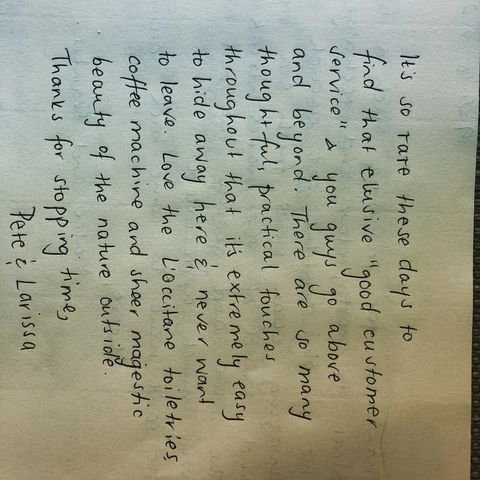 It's so rare these days to
find that elusive "good customer
service" & you guys go above
and beyond. There are so many
thoughtful, practical touches
throughout that it's extremely easy
to hide away here & never want
to leave. Love the L'occitane toiletries,
coffee machine and sheer magestic
beauty of the nature outside.
Thanks for stopping time,
Pete & Larissa